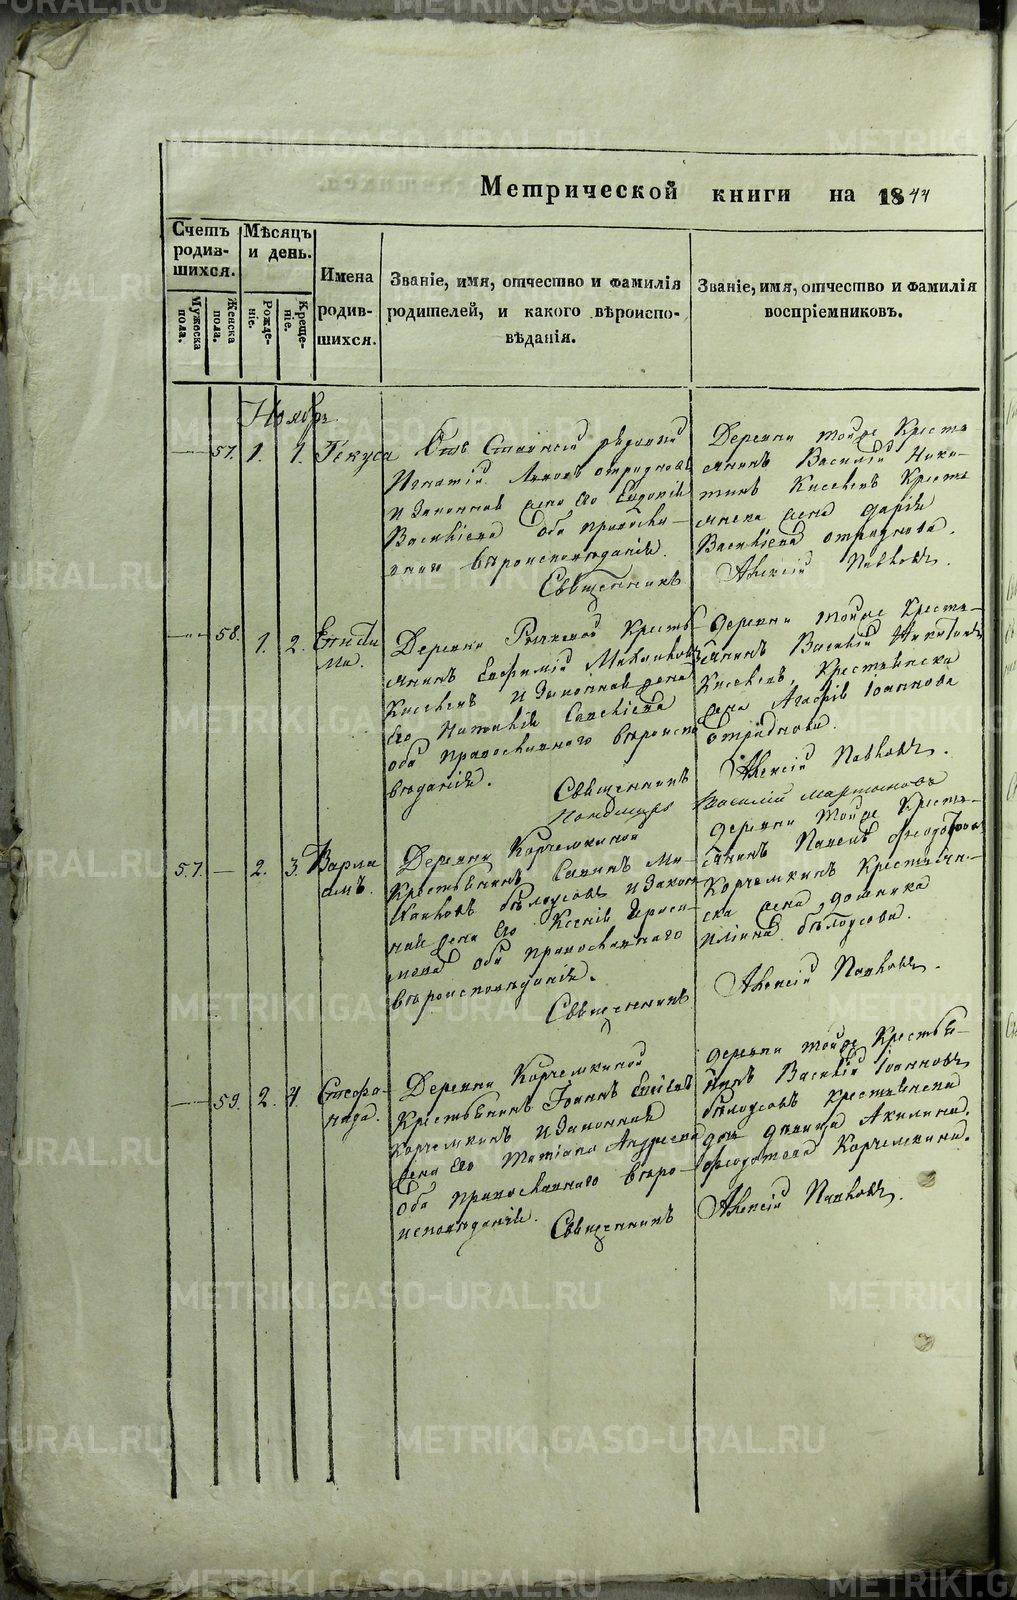 METRIKI.GASO-URAL.RU
Метрической книги на 1844
Счетъ родившихся.
Мужеска пола.
Женска пола.
Мѣсяцъ и день.
Рожденіе.
Крещеніе.
Имена родившихся.
Званіе, имя, отчество и фамилія родителей, и какого вѣроисповѣданія.
Званіе, имя, отчество и фамилія воспріемниковъ.
Ноябрь
57. 1. 1. Текуса
Игнатій отрядновъ
и законная жена его Евдокія
Василіева оба православ-
наго вѣроисповѣданія.
Священникъ
Деревни тойже Кресть
янинъ Василій Ники-
тинъ Киселевъ Кресть
янска жена Дарія
Василіева отряднова.
Алексій Павловъ.
58. 1. 2.
Деревни Кресть
янинъ Евфимій Михаиловъ
Киселевъ и законная жена
его Наталія Савеліева
оба православнаго вѣроиспо
вѣданія.
Священникъ
Пономарь
деревни тойже Кресть-
янинъ Василій Никитинъ
Киселевъ, Крестьянска
жена Агафія Іоаннова
Отряднова.
Алексій Павловъ.
Василій Мартыновъ
57. — 2. 3. Варла
амъ.
Деревни Корчемкиной
Крестьянинъ Ми-
хаиловъ бѣлоусовъ и закон
ная жена его Ксенія Гераси-
мова оба православнаго
вѣроисповѣданія.
Священникъ
деревни тойже Кресть-
янинъ Павелъ Феодотовъ
Корчемкинъ Крестьян-
ска жена домника
бѣлоусова.
Алексій Павловъ.
59. 2. 4. Стефа-
нида.
Деревни Корчемкиной
Крестьянинъ Іоаннъ
Корчемкинъ и законная
жена его Татіана Андреева
Оба православнаго вѣро-
исповѣданія.
Священникъ
деревни тойже Крестья-
нинъ Василій Іоанновъ
бѣлоусовъ крестьянская
дочь дѣвица Акилина
Феодотова Корчемкина.
Алексій Павловъ.